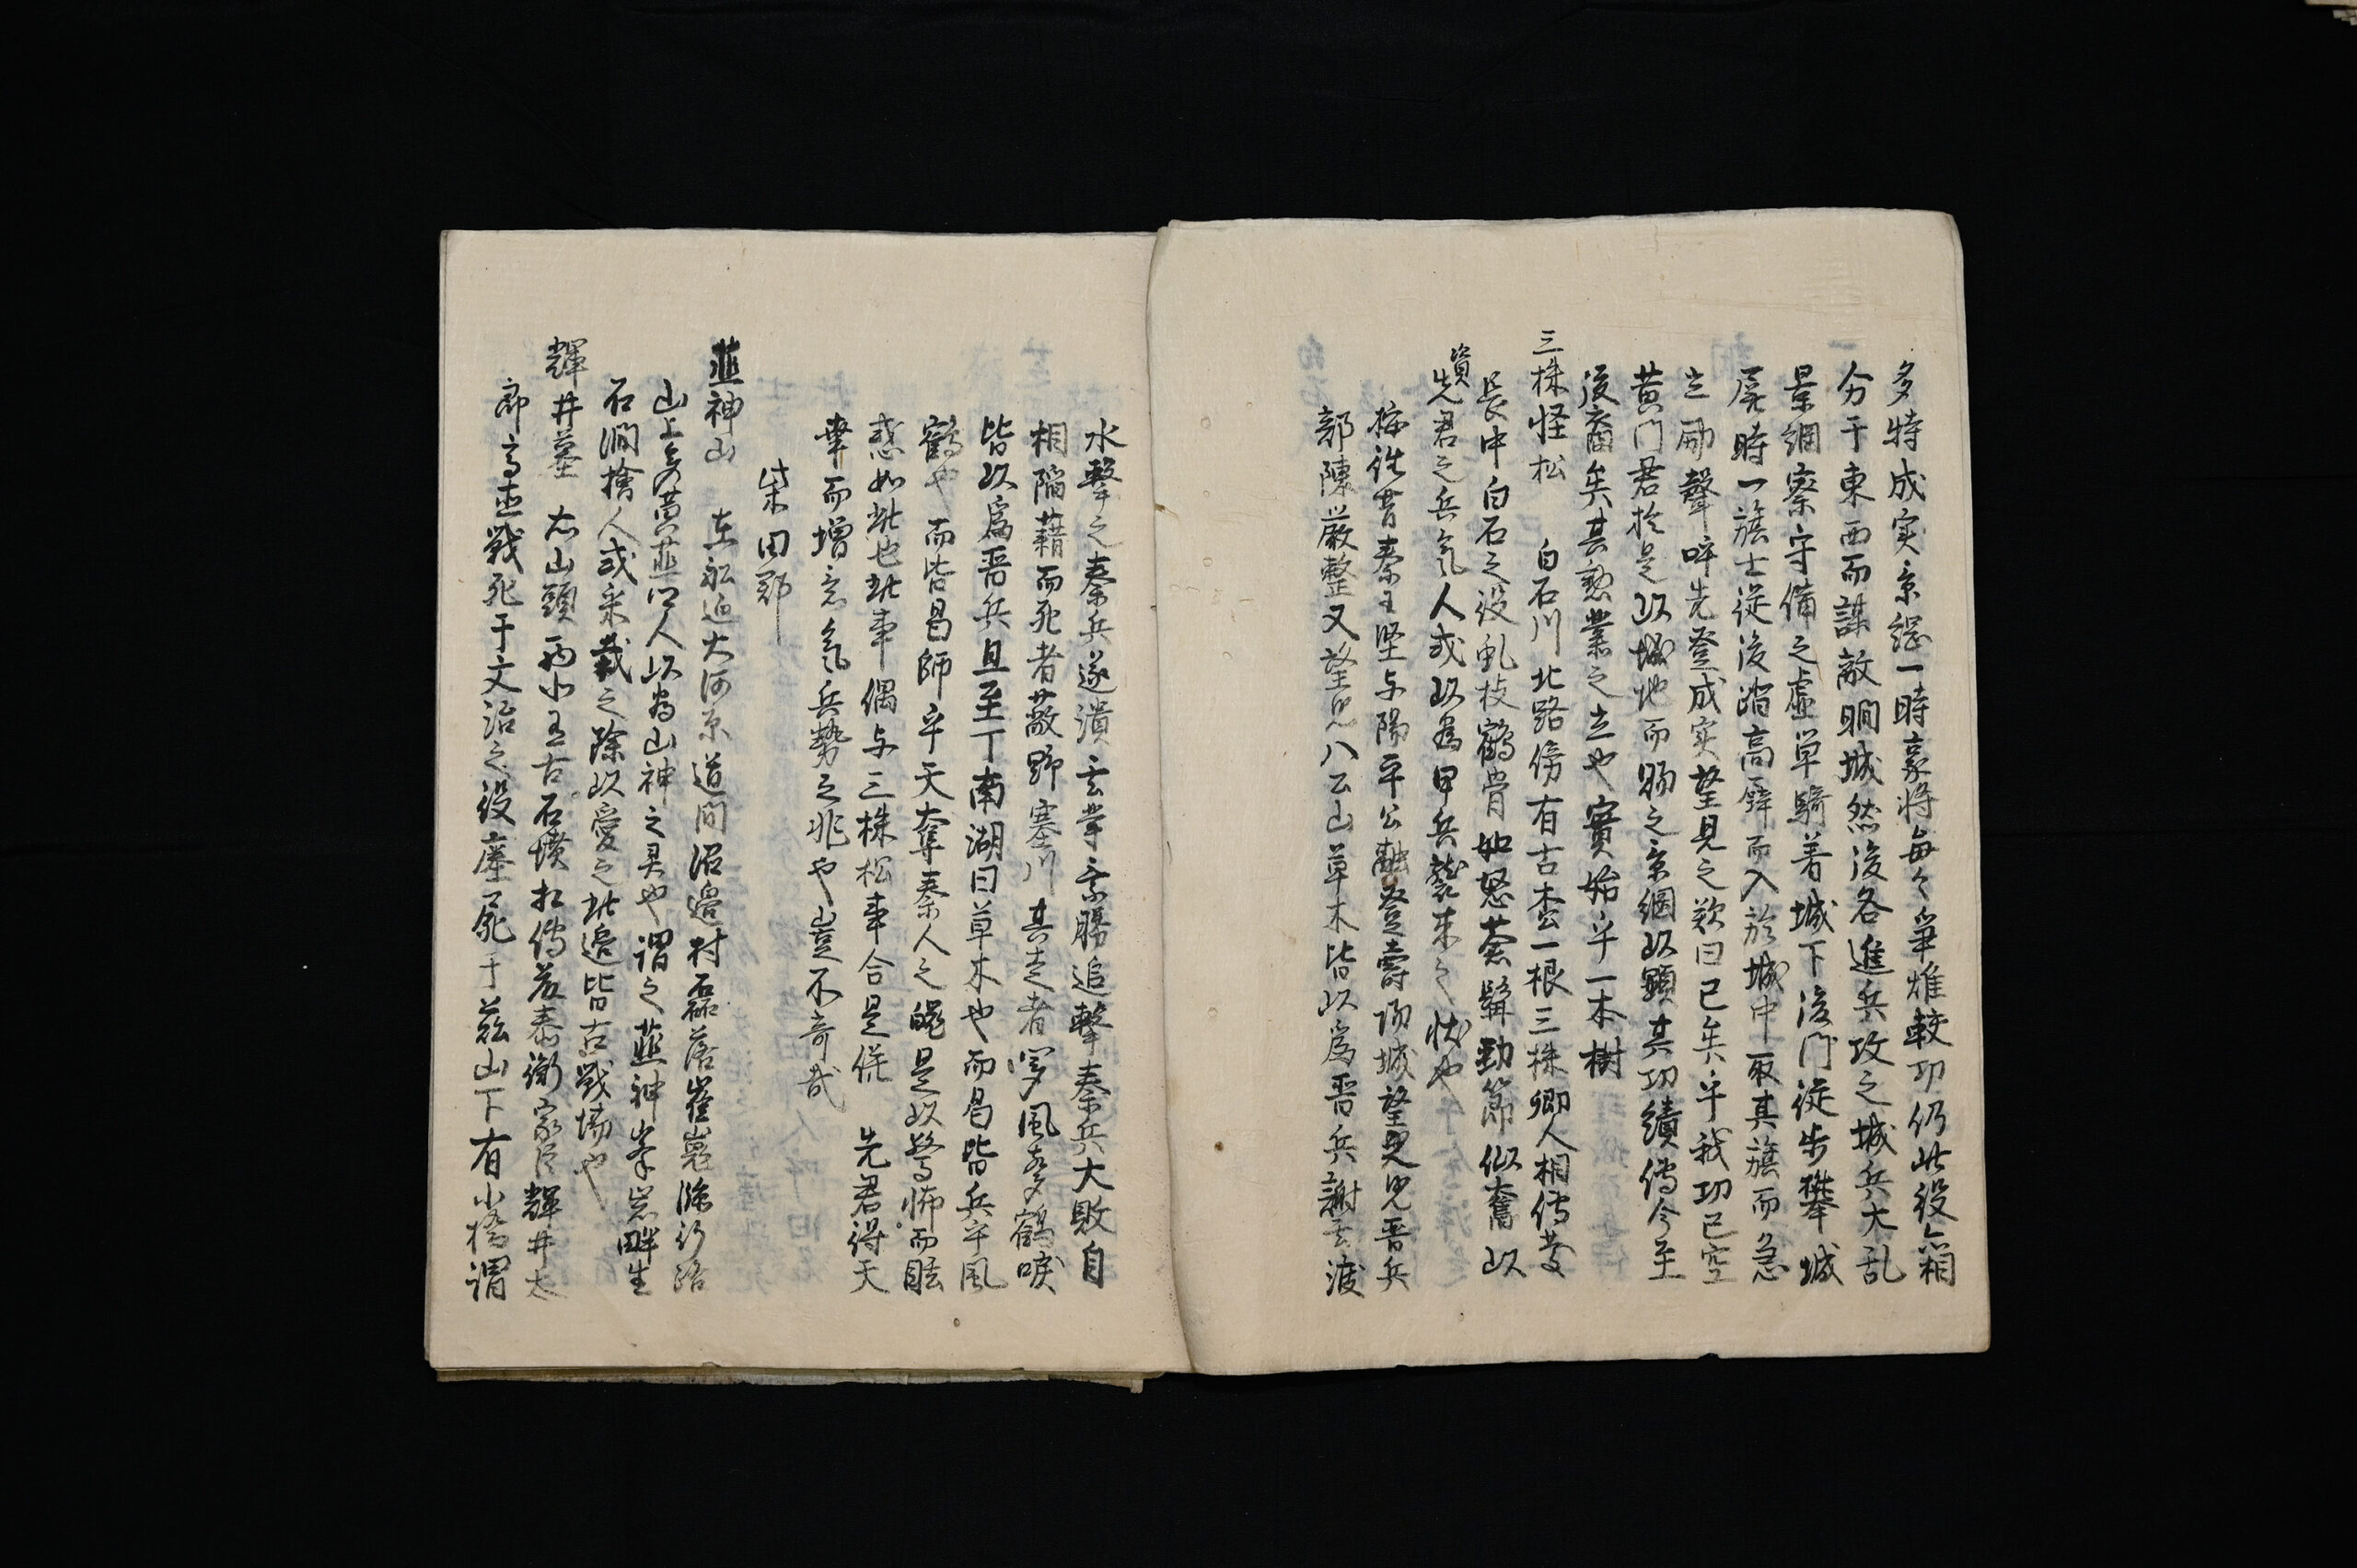 多特成実景綱一時豪将毎々爭雄較功仍此役亦相
分于東西而謀敵瞷城然後各進兵攻之城兵大乱
景綱察守備之虚単騎着城下後門徒歩攀城
屏時一旗士従後踏高壁而入於城中取其旗而急
立勵聲呼先登成実望見之歎曰已矣乎我功已空
黄門君於是以城地而賜之景綱以顕其功績傳今至
後裔矣其勲業之立也實始乎一木樹
三株怪松 白石川北路傍有古杢一根三株郷人相傳慶
長中白石之役虬枝鶴骨如怒蒼髯勁節似奮以
資先君之兵氣人或以為甲兵襲来之状也
按誌昔秦王堅与陽平公融登壽陽城望見晋兵
部陳嚴整又望見八公山草木皆以為晋兵謝玄渡
水撃之秦兵遂潰玄等乘勝追撃秦兵大敗自
相陥藉而死者蔽野塞川其走者聞風聲鶴唳
皆以為晋兵且至丁南湖曰草木也而皆兵乎風
鶴也而皆師乎天奪秦人之魄是以驚怖而眩
惑如此也此事偶与三株松事合是併 先君得天
幸而増之氣兵勢之兆也豈不奇哉
柴田郡
韮神山 在船迫大河原道間沼邉村磊落崔嵬滌行路
山上多黄韮江人以為山神之具也謂之韮神峯岩畔生
石澗擔人或采栽之除以愛之此邉皆古戦場也
輝井墓 右山頭両小五古石墳相傳為泰衡家臣輝井太
郎高直戦死于文治之役塵死于茲山下有小橋謂